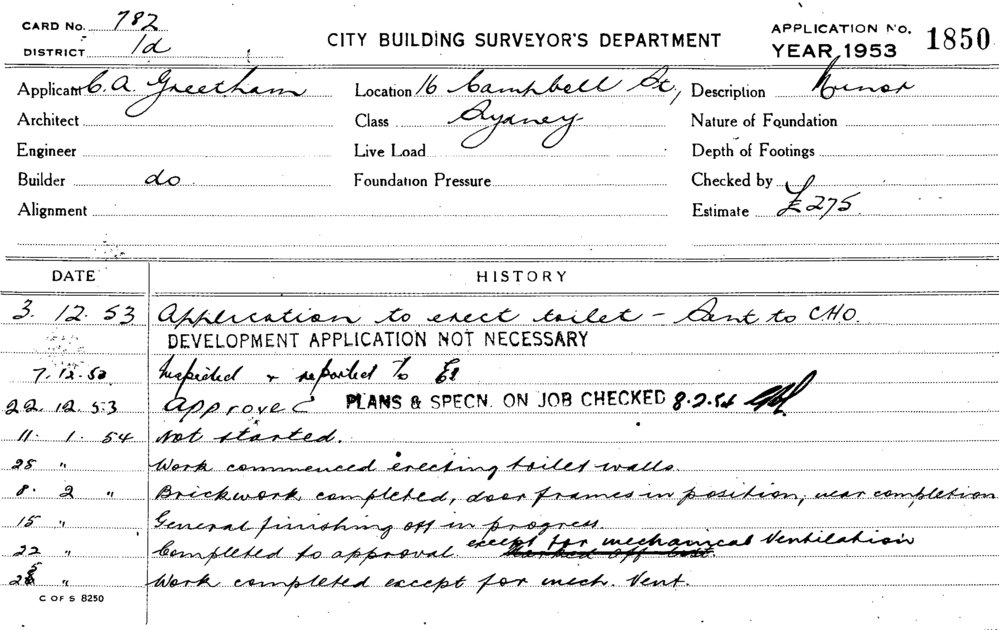 CARD No. 782
DISTRICT 1d
CITY BUILDING SURVEYOR'S DEPARTMENT
APPLICATION No. 1850
YEAR, 1953
Applicant C. A. Greetham
Location 16 Campbell St,
Description Minor
Architect
Class Sydney
Nature of Foundation
Engineer
Live Load
Depth of Footings
Builder do
Foundation Pressure
Checked by
Alignment
Estimate £275
DATE HISTORY
3. 12. 53 Application to erect toilet - Sent to CHO.
DEVELOPMENT APPLICATION NOT NECESSARY
7.12.53 Inspected & reported to
22. 12. 53 Approved PLANS & SPECN. ON JOB CHECKED 8.2.54
11. 1. 54 Not started.
25 " Work commenced erecting toilet walls.
8. 2 " Brickwork completed, door frames in position, near completion
15 " General finishing off in progress.
22 " Completed to approval except for mechanical Ventilation
" Work completed except for mech. Vent.
C OF S 8250